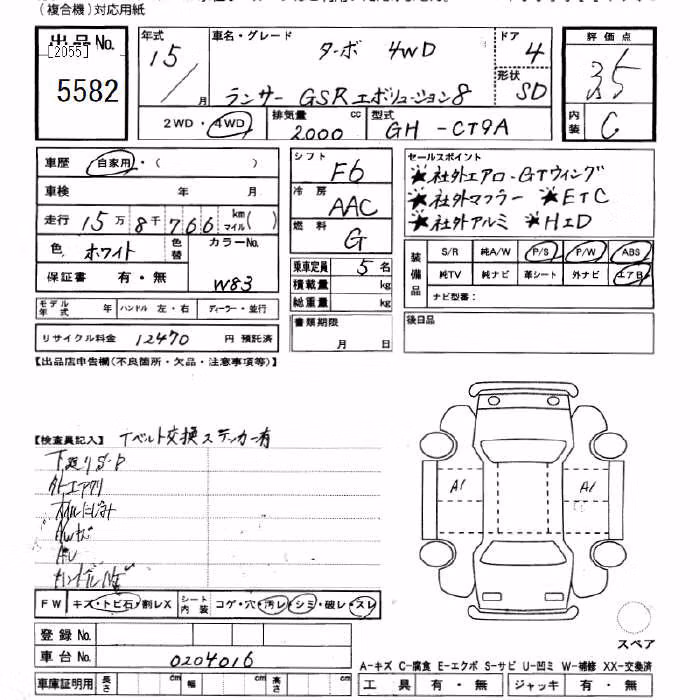 (複合機)対応用紙
出品No.
[2055]
5582
年式 15 / 月
車名・グレード ターボ 4WD
ランサー GSRエボリューション8
ドア 4
形状 SD
評価点 3.5
内装 C
2WD・4WD
排気量 2000 cc
型式 GH-CT9A
車歴 自家用・( )
車検 年 月
走行 15万8千766 km マイル( )
色 ホワイト 色替 カラーNo. W83
保証書 有・無
モデル年式 年 ハンドル 左・右 ディーラー・並行
リサイクル料金 12470 円 預託済
シフト F6
冷房 AAC
燃料 G
乗車定員 5 名
積載量 kg
総重量 kg
書類期限 月 日
セールスポイント
★社外エアロ・GTウィング
★社外マフラー ★ETC
★社外アルミ ★HID
装備品 S/R 純A/W P/S P/W ABS
純TV 純ナビ 革シート 外ナビ エアB
ナビ型番:
後日品
【出品店申告欄(不良箇所・欠品・注意事項等)】
【検査員記入】 Tベルト交換ステッカー有
オイルにじみ
A1 A1
FW キズ・トビ石・割レX シート内装 コゲ・穴・汚レ・シミ・破レ・スレ
登録No.
車台No. 0204016
車庫証明用 長さ cm 幅 cm 高さ cm
スペア
A-キズ C-腐食 E-エクボ S-サビ U-凹ミ W-補修 XX-交換済
工具 有・無 ジャッキ 有・無